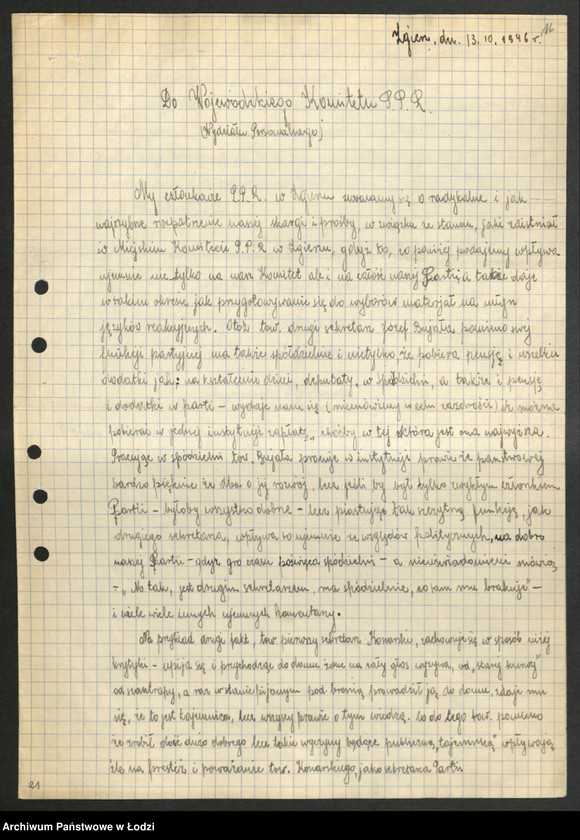 Zgierz, dn. 13.10.1946 r.
Do Wojewódzkiego Komitetu P.P.R.
(Wydziału Personalnego)
My członkowie P.P.R. w Zgierzu zwracamy się o radykalne i jak
najrybne rozpatrzenie naszej skargi i prośby, w związku ze stanem, jaki zaistniał
w Miejskim Komitecie P.P.R. w Zgierzu, gdyż to, co poniżej podajemy wpływa
ujemnie nie tylko na nasz Komitet ale i na całość naszej Partii, a także daje
w takim okresie jak przygotowywanie się do wyborów materjał na młyn
języków reakcyjnych. Otóż tow. drugi sekretarz Józef Bujała pomimo swej
funkcji partyjnej ma także spółdzielnie i nietylko że pobiera pensję i wszelkie
dodatki jak: na kształcenie dzieci, deputaty, w spółdzielni, a także i pensję
i dodatki w partii – wydaje nam się (niemówimy w celu zazdrości) iż można
pobierać w jednej instytucji zapłatę, choćby w tej która jest ona najwyższa.
Pracując w spółdzielni tow. Bujała pracuje w instytucji prawie że państwowej
bardzo pięknie że dba o jej rozwój, lecz jeśli by był tylko zwykłym członkiem
Partii – byłoby wszystko dobrze – lecz piastując tak zaszczytną funkcję, jak
drugiego sekretarza, wpływa to ujemnie ze względów politycznych, na dobro
naszej Partii – gdyż gro czasu poświęca spółdzielni – a nieuświadomieni mówią
– „No tak, jest drugim sekretarzem, ma spółdzielnie, co sam mu brakuje" –
i wiele wiele innych ujemnych komentarzy.
Na przykład drugi fakt, tow. pierwszy sekretarz Konarski, zachowuje się w sposób niżej
krytyki – upija się i przychodząc do domu żonę na cały głos wyzywa, od „starej
od szantrapy, a raz w stanie pijanym pod bronią prowadził ją do domu, zdaje mu
się, że to jest tajemnica, lecz wszyscy prawie o tym wiedzą. Co do tego tow. pomimo
że zrobił dość dużo dobrego lecz takie wyczyny będące publiczną „tajemnicą" wpływają
źle na prestiż i poważanie tow. Konarskiego, jako sekretarza Partii
21
Archiwum Państwowe w Łodzi